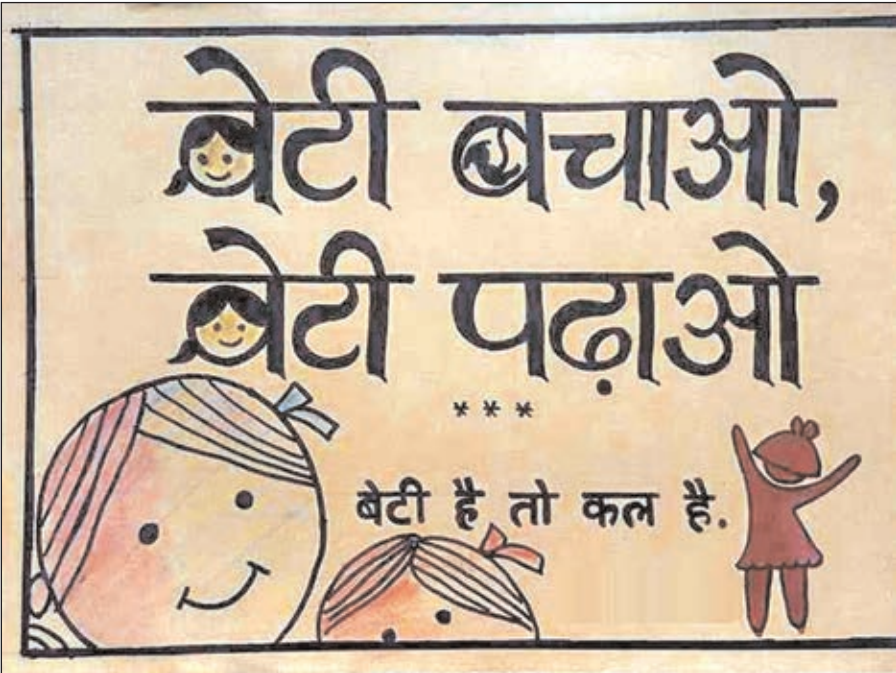 बेटी बचाओ,
बेटी पढ़ाओ
***
बेटी है तो कल है.